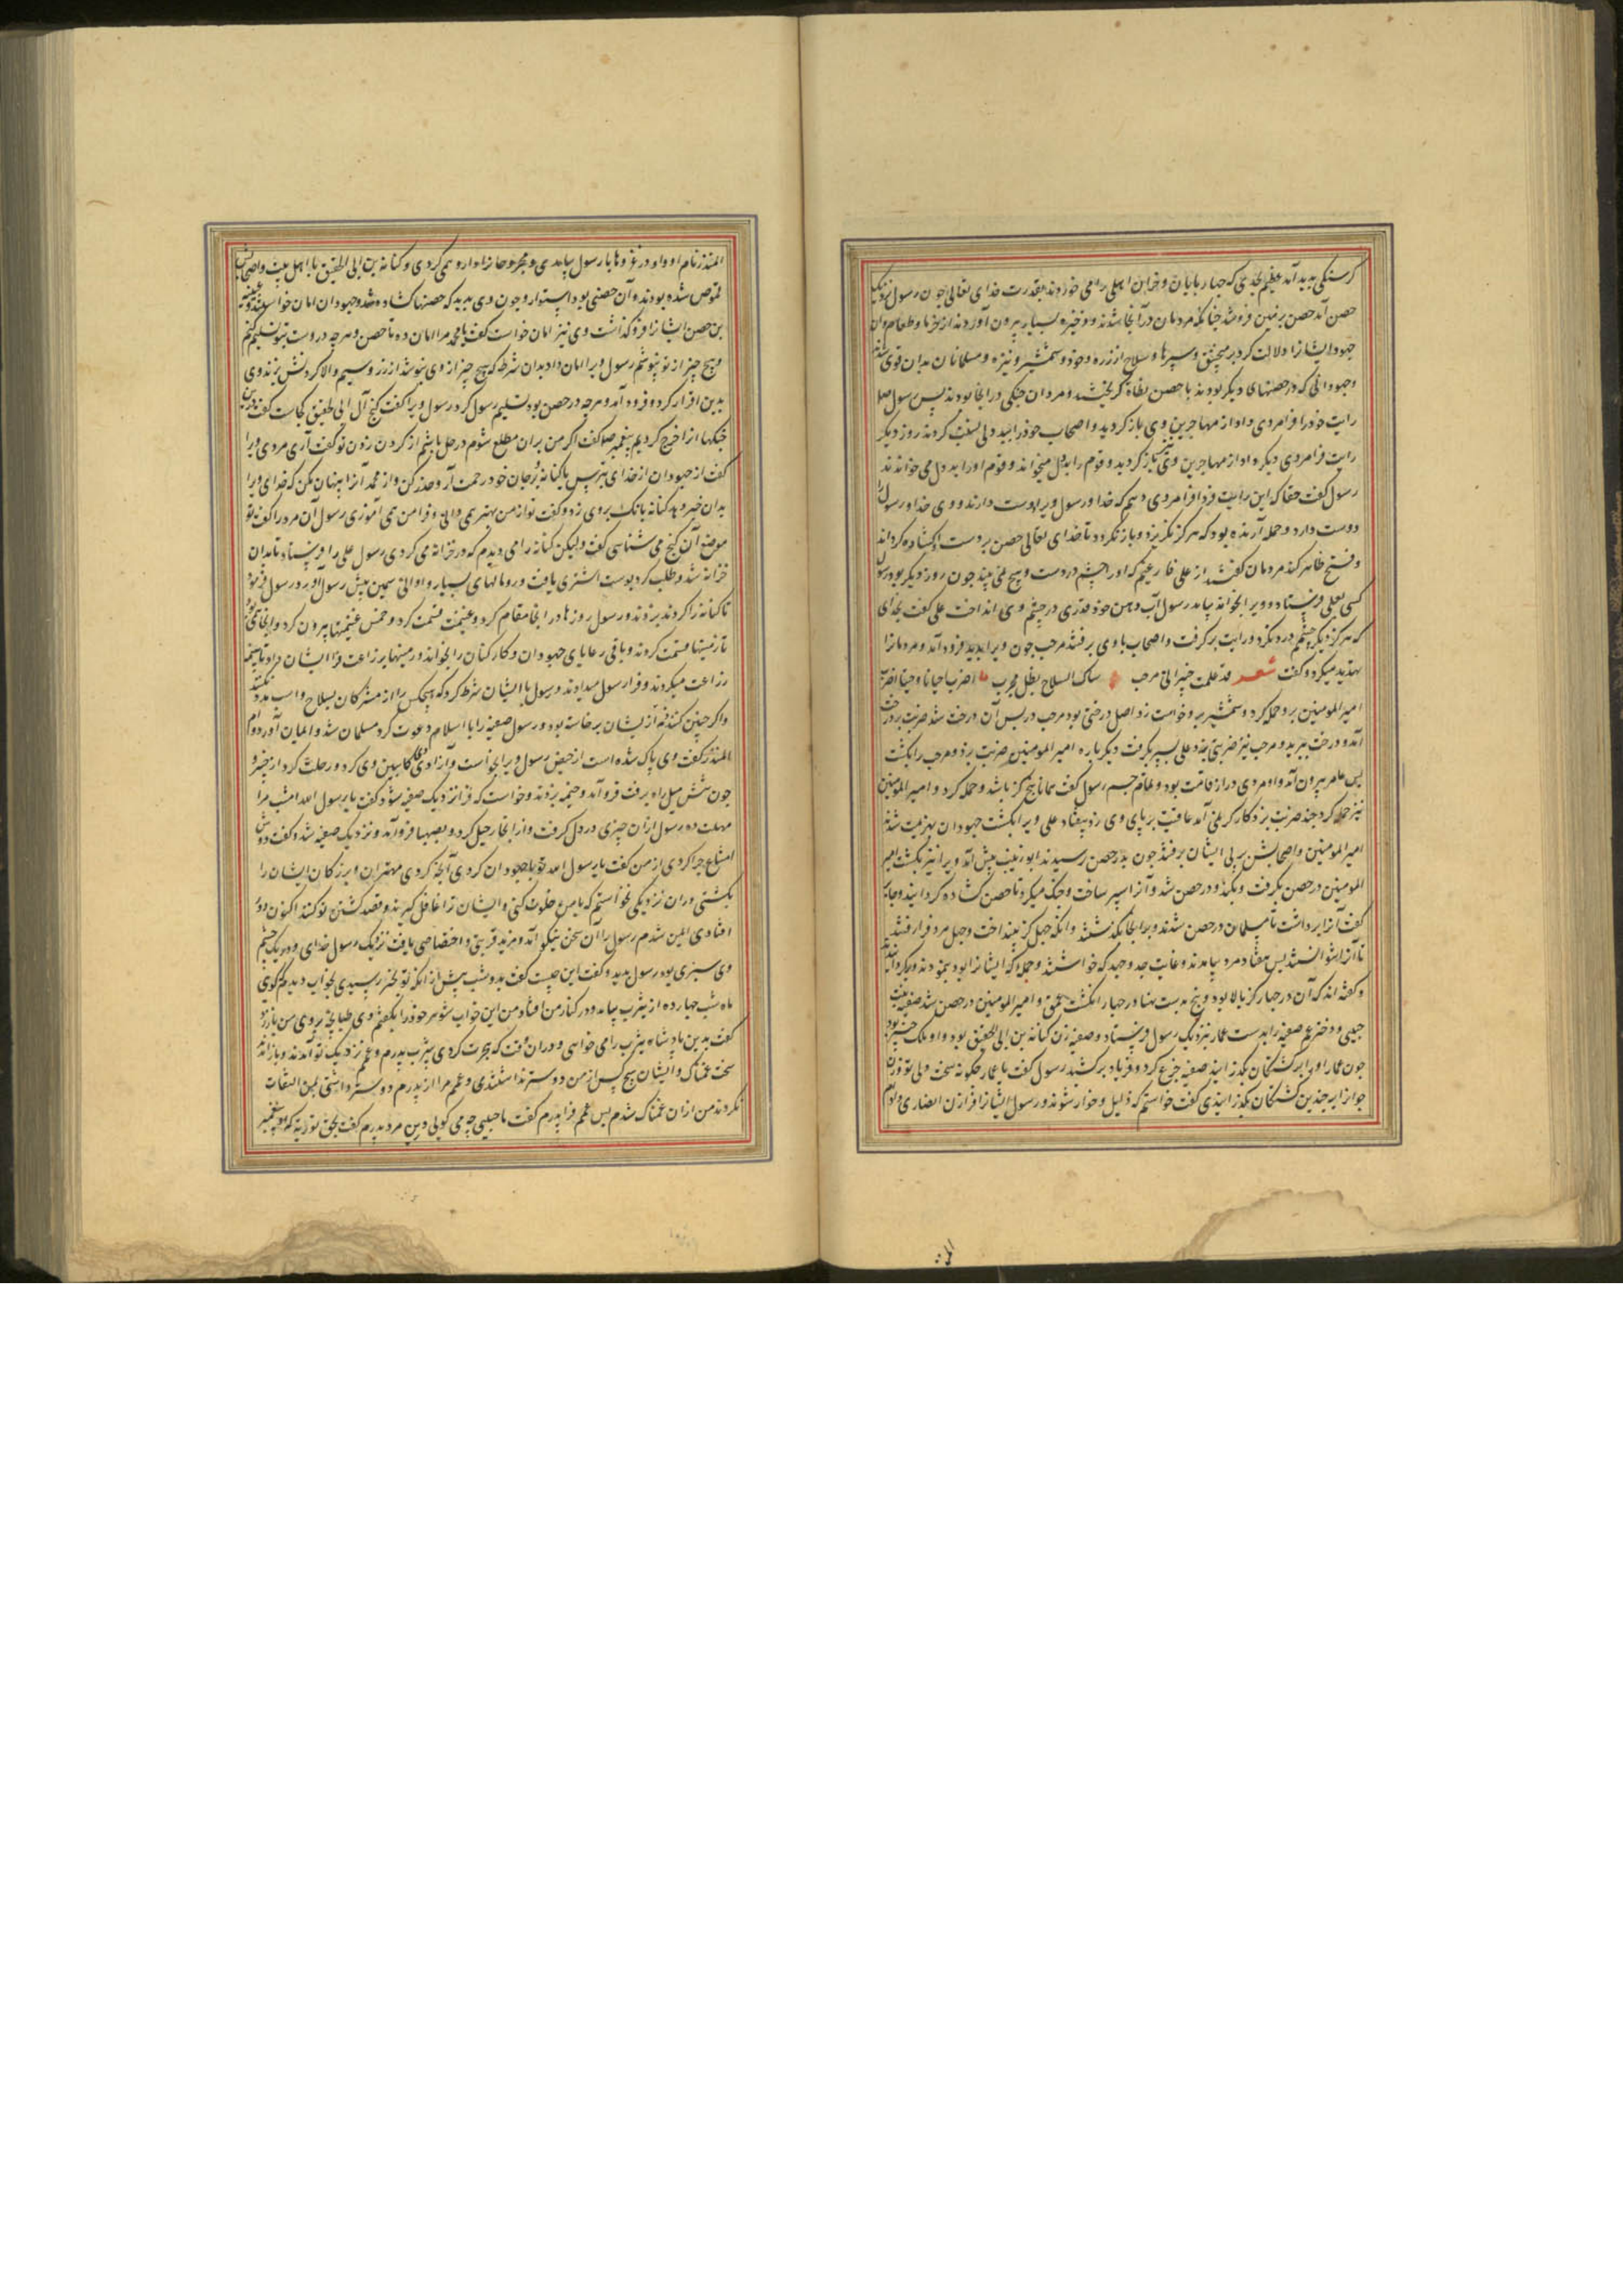 کرسنکی پدید آمد عظیم بحدی که چهارپایان و خران اهلی را می خوردند بقدرت خدای تعالی چون رسول نزدیک
حصن آمد حصن بزمین فرو شد چنانکه مردمان در آنجا شدند و ذخیره بسیار بیرون آوردند از خرما و طعام و ان
جهود ایشانرا دلالت کرد بر منجنیق و سپرها و سلاح از زره و خود و شمشیر و نیزه و مسلمانان بدان قوی شدند
و جهودانی که در حصنهای دیکر بودند با حصن نطاة کریختند و مردان جنکی در انجا بودند پس رسول صلعم
رایت خود را فرا مردی داد از مهاجرین وی باز کردید و اصحاب خود را بد دلی نسبت کردند روز دیکر
رایت فرا مردی دیکر داد از مهاجرین وی نیز باز کردید و قوم را بددل میخواند و قوم او را بد دل می خواندند
رسول کفت حقا که این رایت فردا فرا مردی دهم که خدا و رسول ویرا دوست دارند و وی خدا و رسول را
دوست دارد و حمله آرنده بود که هرکز نکریزد و باز نکردد تا خدای تعالی حصن بر دست او کشاده کرداند
و فتح ظاهر کند مردمان کفتند از علی فارغیم که او را چشم در دست و هیچ نمی بیند چون روز دیکر بود رسول
کسی بعلی فرستاد و ویرا بخواند بیامد رسول آب دهن خود قدری در چشم وی انداخت علی کفت بخدای
که هرکز دیکر چشمم درد نکرد و رایت بر کرفت و اصحاب با وی برفتند مرحب چون ویرا بدید فرود آمد و مردمانرا
تهدید میکرد و کفت شعر قد علمت خیبر انی مرحب شاک السلاح بطل مجرب اضرب احیانا و حینا اضرب
امیر المومنین برو حمله کرد و شمشیر برو خواست زد اصل درختی بود مرحب در پس آن درخت شد ضربت بر درخت
آمد و درخت ببرید و مرحب نیز ضربتی بزد علی بسپر بکرفت دیکر باره امیر المومنین ضربت بزد و مرحب را بکشت
پس عامر بیرون آمد و او مردی دراز قامت بود و تمام جسم رسول کفت همانا پنج کز باشد و حمله کرد و امیر المومنین
نیز حمله کرد چند ضربت بزد کارکر نمی آمد عاقبت بر پای وی زد بیفتاد علی ویرا بکشت جهودان بهزیمت شدند
امیر المومنین و اصحابش بر پی ایشان برفتند چون بدر حصن رسیدند ابو زینب پیش آمد ویرا نیز بکشت امیر
المومنین در حصن بکرفت و بکند و در حصن شد و آنرا سپر ساخت و جنک میکرد تا حصن کشاده کردانید و
کفت آنرا برداشت تا مسلمانان در حصن شدند و بر انجا بکذشتند وانکه چهل کز بینداخت و چهل مرد فرا رفتند
تا آنرا نتوانستند پس هفتاد مرد بیامدند و غایت جد و جهد که خواستند و جمله که ایشانرا بود بنمودند و
و کفته اند که آن در چهار کز بالا بود و پنج بدست پهنا و چهار انکشت عمق و امیر المومنین در حصن شد صفیه بنت
حیی و دختر عم صفیه را بدست عمار نزدیک رسول فرستاد و صفیه زن کنانه بن ابی الحقیق بود و او ملک خیبر بود
چون عمار او را بر کشتکان بکذرانید صفیه جزع کرد و فریاد برکشید رسول کفت یا عمار چکونه سخت دلی تو دو زن
جوانرا بر چندین کشتکان بکذرانیدی کفت خواستم که ذلیل و خوار شوند و رسول ایشانرا فرا زن انصاری داد ام
المنذر نام او و او در غزوها با رسول بیامدی و مجروحانرا دارو می کردی و کنانه بن ابی الحقیق با اهل بیت و اصحابش
بقموص شده بودند و آن حصنی بود استوار و چون وی بدید که حصنها کشاده شد و جهودان امان خواستند
بن حصن ایشانرا فرو کذاشت وی نیز امان خواست کفت یا محمد مرا امان ده تا حصن و هرچه دروست بتو تسلیم کنم
و هیچ چیز از تو نپوشم رسول ویرا امان داد بدان شرط که هیچ چیز از وی نپوشد از زر و سیم والا کردنش بزند وی
بدین اقرار کرد و فرود آمد و هرچه در حصن بود تسلیم رسول کرد رسول ویرا کفت کنج آل ابی الحقیق کجاست کفت
جنکها انرا خرج کردیم پیغمبر صلعم کفت اکر من بران مطلع شوم در حل باشم از کردن زدن تو کفت آری مردی ویرا
کفت از جهودان از خدای بترس یا کنانه بر جان خود رحمت آر و حذر کن و از محمد آنرا پنهان مکن که خدای ویرا
بدان خبر دهد کنانه بانک بروی زد و کفت تو از من بهتر می دانی و فرا من می آموزی رسول آن مرد را کفت تو
موضع آن کنج می شناسی کفت ولیکن کنانه را می دیدم که در خزانه می کردی رسول علی را فرستاد تا بدان
خزانه شد و طلب کرد پوست اشتری یافت و رومالهای بسیار و اوانی سیمین پیش رسول آورد رسول فرمود
تا کنانه را کردن بزدند و رسول روزها در انجا مقام کرد و غنیمت قسمت کرد و خمس غنیمتها بیرون کرد و
تا زمینها قسمت کردند و باقی رعایای جهودان و کارکنان را بخواند و زمینها بزراعت فرا ایشان داد تا
زراعت میکردند و قرار رسول میدادند و رسول با ایشان شرط کرد که هیچکس را از مشرکان بسلاح و اسب مدد نکنند
و اکر چنین کنند ذمه از ایشان برخاسته بود و رسول صفیه را با اسلام دعوت کرد مسلمان شد و ایمان آورد و ام
المنذر کفت وی پاک شده است از حیض رسول ویرا بخواست و آزادی کابین وی کرد و رحلت کرد از خیبر و
چون شش میل راه برفت فرو آمد و خیمه بزدند و خواست که فرا نزدیک صفیه شود کفت یا رسول الله امشب مرا
مهلت ده رسول ازان چیزی در دل کرفت و از انجا رحیل کرد و بصهبا فرو آمد و نزدیک صفیه شد و کفت دوش
امتناع چرا کردی از من کفت یا رسول الله تو با جهودان کردی آنچه کردی مهتران و بزرکان ایشان را
بکشتی و ران نزدیکی نخواستم که با من خلوت کنی و ایشان ترا غافل کیرند و قصد کشتن تو کنند اکنون دور
افتادی ایمن شدم رسول را آن سخن نیکو آمد و مزید قربتی و اختصاصی یافت نزدیک رسول خدای و در یک چشم
وی سبزی بود رسول بدید و کفت این چیست کفت بدو شب پیش از آنکه تو بخیبر رسیدی بخواب دیدم که کوئی
ماه شب چهارده از یثرب بیامد و در کنار من افتاد من این خواب شوهر خود را بکفتم وی طپانچه بر روی من باز زد
کفت بدین پادشاه یثرب را می خواهی و دران وقت که هجرت کردی بیثرب پدرم و عمم نزدیک تو آمدند و باز آمدند
سخت غمناک و ایشان هیچ کس از من دوستر نداشتندی و عمم مرا از پدرم دوستر داشتی بمن التفات
نکردند من ازان غمناک شدم پس عمم فرا پدرم کفت ما حیی چه می کوئی درین مرد پدرم کفت بحق توریة که او پیغمبر